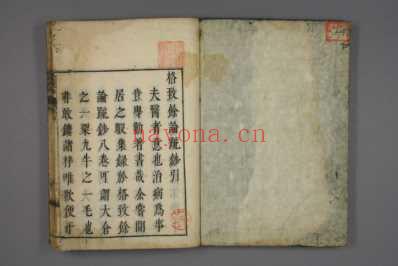 格致餘論疏鈔引
夫醫者意也治病爲事
豈專勤著書哉余嘗聞
居之暇集録於格致餘
論疏鈔八卷可謂大倉
之一粟九牛之一毛也
非敢鏤諸梓唯欲便于
nayona.cn